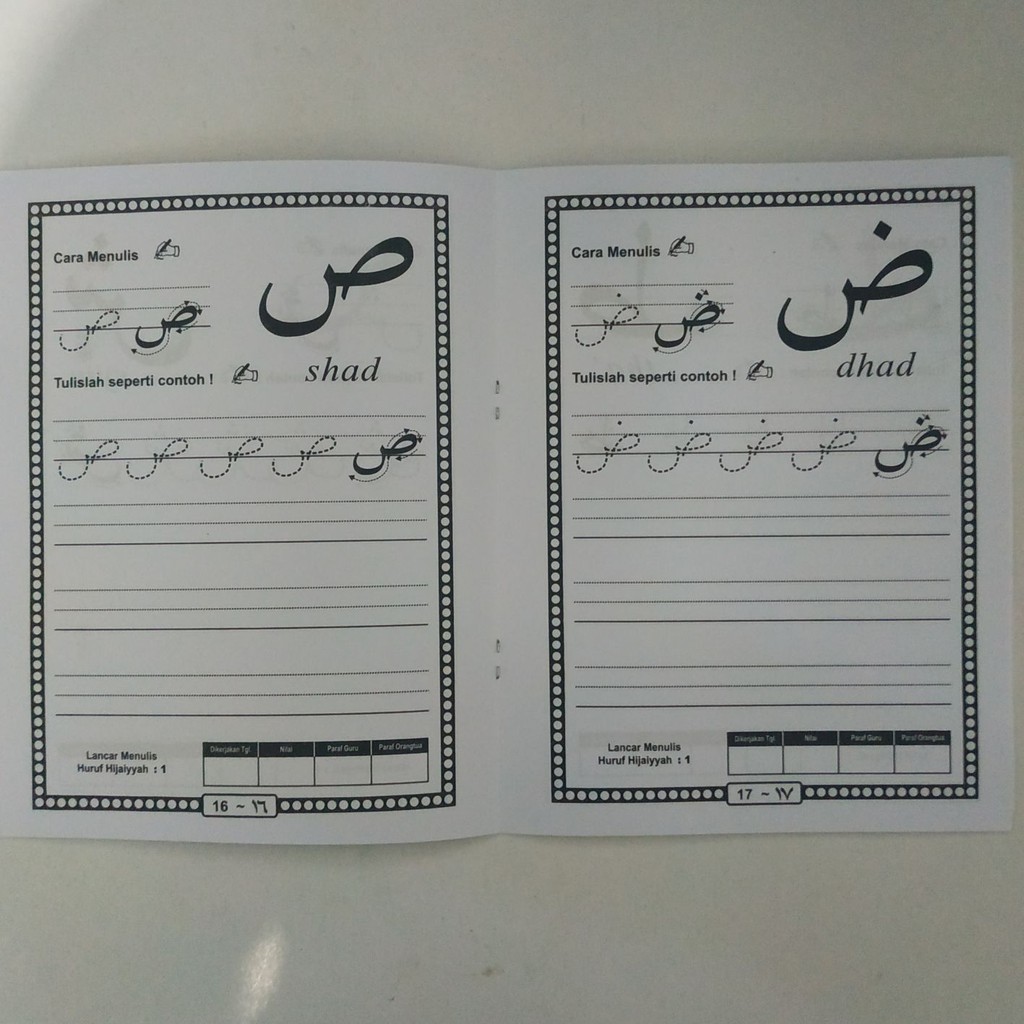 Cara Menulis
ص
ص ص
shad
Tulislah seperti contoh !
ص ص ص ص ص
Lancar Menulis
Huruf Hijaiyyah : 1
Dikerjakan Tgl. Nilai Paraf Guru Paraf Orangtua
16 ~ ١٦
Cara Menulis
ض
ض ض
dhad
Tulislah seperti contoh !
ض ض ض ض ض
Lancar Menulis
Huruf Hijaiyyah : 1
Dikerjakan Tgl. Nilai Paraf Guru Paraf Orangtua
17 ~ ١٧